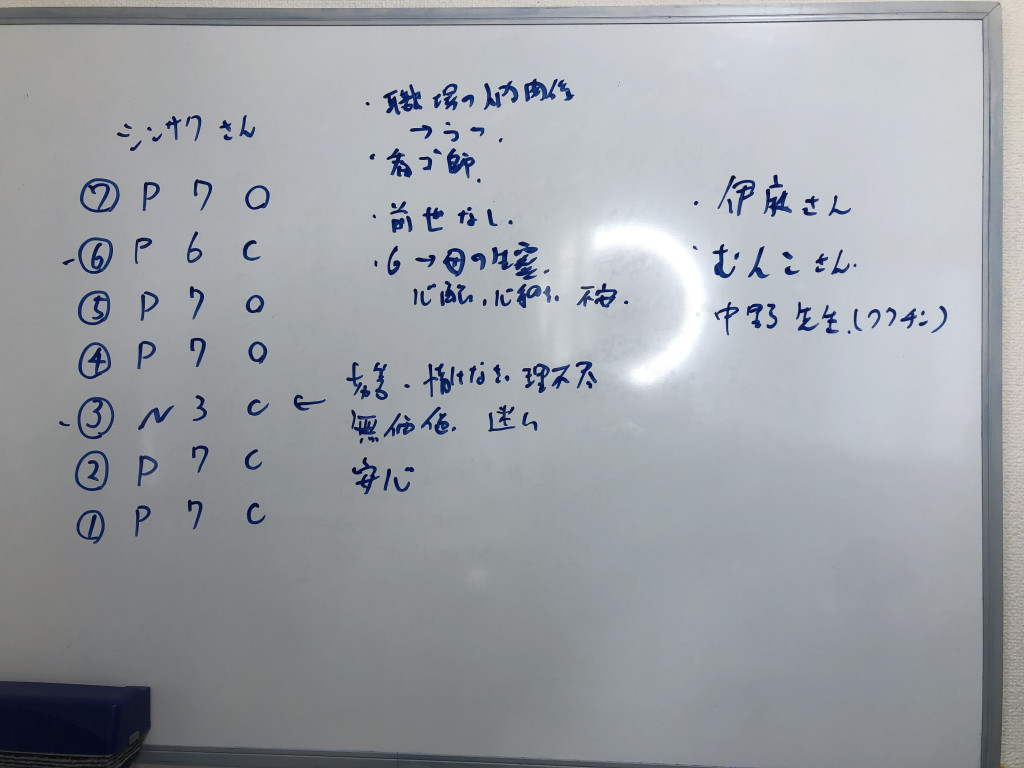 シンサクさん
⑦ P 7 O
-⑥ P 6 C
⑤ P 7 O
④ P 7 O
-③ N 3 C ←
② P 7 C
① P 7 C
・職場の人間関係
→うつ.
・看ゴ師.
・前世なし.
・6→母の生霊.
心配、心細さ 不安.
情けなさ 理不尽
無価値. 迷い
安心
・伊麻さん
・むんこさん.
中野先生.(ワクチン)